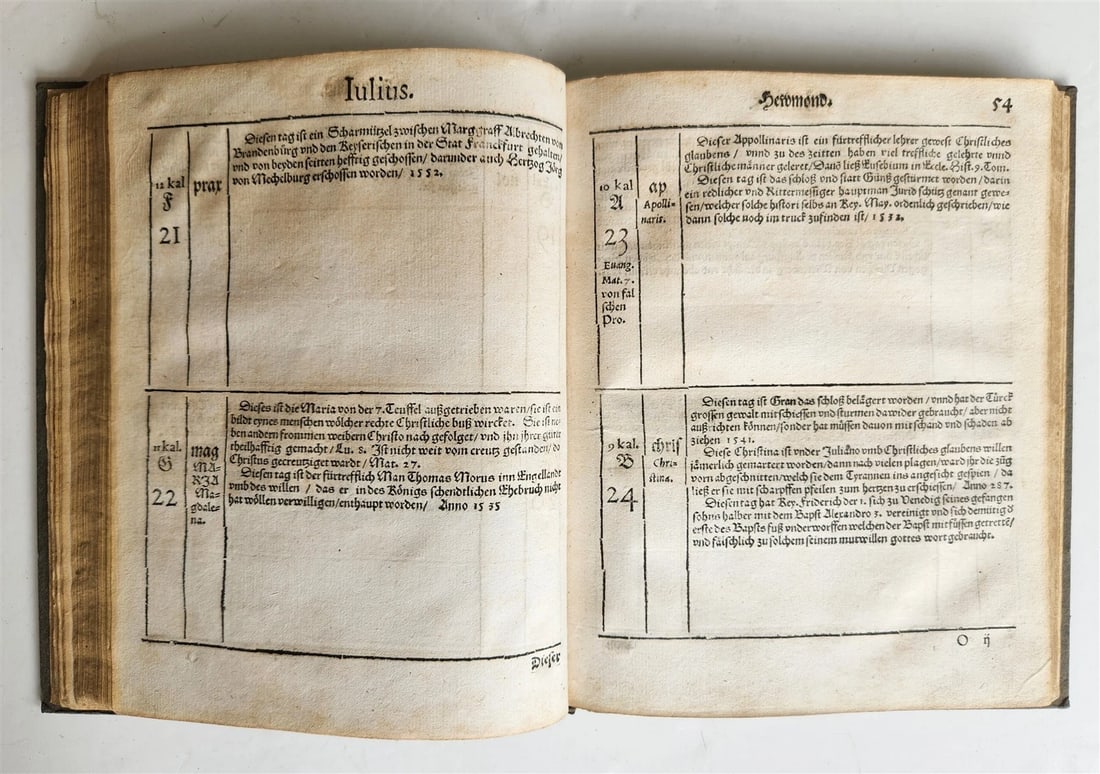 Iulius.
12 kal
F
21
prax
Diesen tag ist ein Scharmützel zwischen Marggraff Albrechten von
Brandenburg vnd den Keyserischen in der Stat Franckfurt gehalten/
vnd von beyden seitten hefftig geschossen/ darunder auch Hertzog Jörg
von Mechelburg erschossen worden/ 1552.
11 kal.
G
22
mag
MA-
RIA
Ma-
gdale-
na.
Dieses ist die Maria von der 7. Teuffel außgetrieben waren/ sie ist ein
bildt eynes menschen wölcher rechte Christliche buß wircket. Sie ist ne-
ben andern frommen weibern Christo nach gefolget/ vnd jhn jhrer güter
theilhafftig gemacht/ Lu. 8. Ist nicht weit vom creutz gestanden/ do
Christus gecreutziget wardt/ Mat. 27.
Diesen tag ist der fürtrefflich Man Thomas Morus inn Engellandt
vmb des willen / das er in des Königs schendtlichen Ehebruch nicht
hat wöllen verwilligen/ enthaupt worden/ Anno 1535
Dieser
Hewmond.
54
10 kal
A
23
Euang.
Mat. 7.
von fal
schen
Pro.
ap
Apolli-
naris.
Dieser Appollinaris ist ein fürtrefflicher lehrer gewest Christliches
glaubens / vnnd zu des zeitten haben viel treffliche gelehrte vnnd
Christliche männer geleret/ Dauō ließ Eusebium in Eccle. Hist. 9. Tom.
Diesen tag ist das schloß vnd statt Günß gestürmet worden/ darin
ein redlicher vnd Rittermessiger hauptman Jurischütz genant gewe-
sen/ welcher solche histori selbs an Key. May. ordenlich geschrieben/ wie
dann solche noch im truck zufinden ist/ 1532.
9 kal.
B
24
chris
Chri-
stina.
Diesen tag ist Gran das schloß belägert worden / vnnd hat der Türck
grossen gewalt mit schiessen vnd sturmen da wider gebraucht/ aber nicht
auß richten können/ sonder hat müssen dauon mit schand vnd schaden ab
ziehen 1541.
Diese Christina ist vnder Juliano vmb Christliches glaubens willen
jämerlich gemartert worden/ dann nach vielen plagen/ ward jhr die züg
vorn abgeschnitten/ welch sie dem Tyrannen ins angesicht gespien / da
ließ er sie mit scharpffen pfeilen zum hertzen zu erschiessen/ Anno 287.
Diesen tag hat Key. Friderich der 1. sich zu Venedig seines gefangen
sohns halber mit dem Bapst Alexandro 3. vereinigt vnd sich demütig
erste des Bapsts fuß vnderworffen welchen der Bapst mit füssen getretté/
vnd fälschlich zu solchem seinem mutwillen gottes wort gebraucht.
O ij